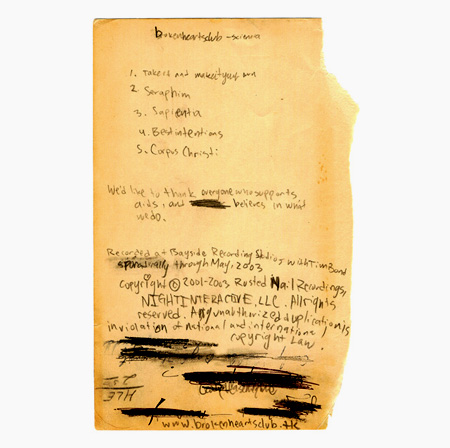 brokenheartsclub - scienna
1. Take it and make it your own
2 Seraphim
3. Sapienta
4. Best intentions
5. Corpus Christi
We'd like to think everyone who supports
aids, and believes in what
we do.
Recorded at Bayside Recording Studios with Tim Bond
sporadically through May, 2003
copyright © 2001-2003 Rusted Nail Recordings,
NIGHTINTERACTIVE, LLC. All rights
reserved. Any unauthorized duplication is
in violation of national and international
copyright Law.
www.brokenheartsclub.tk